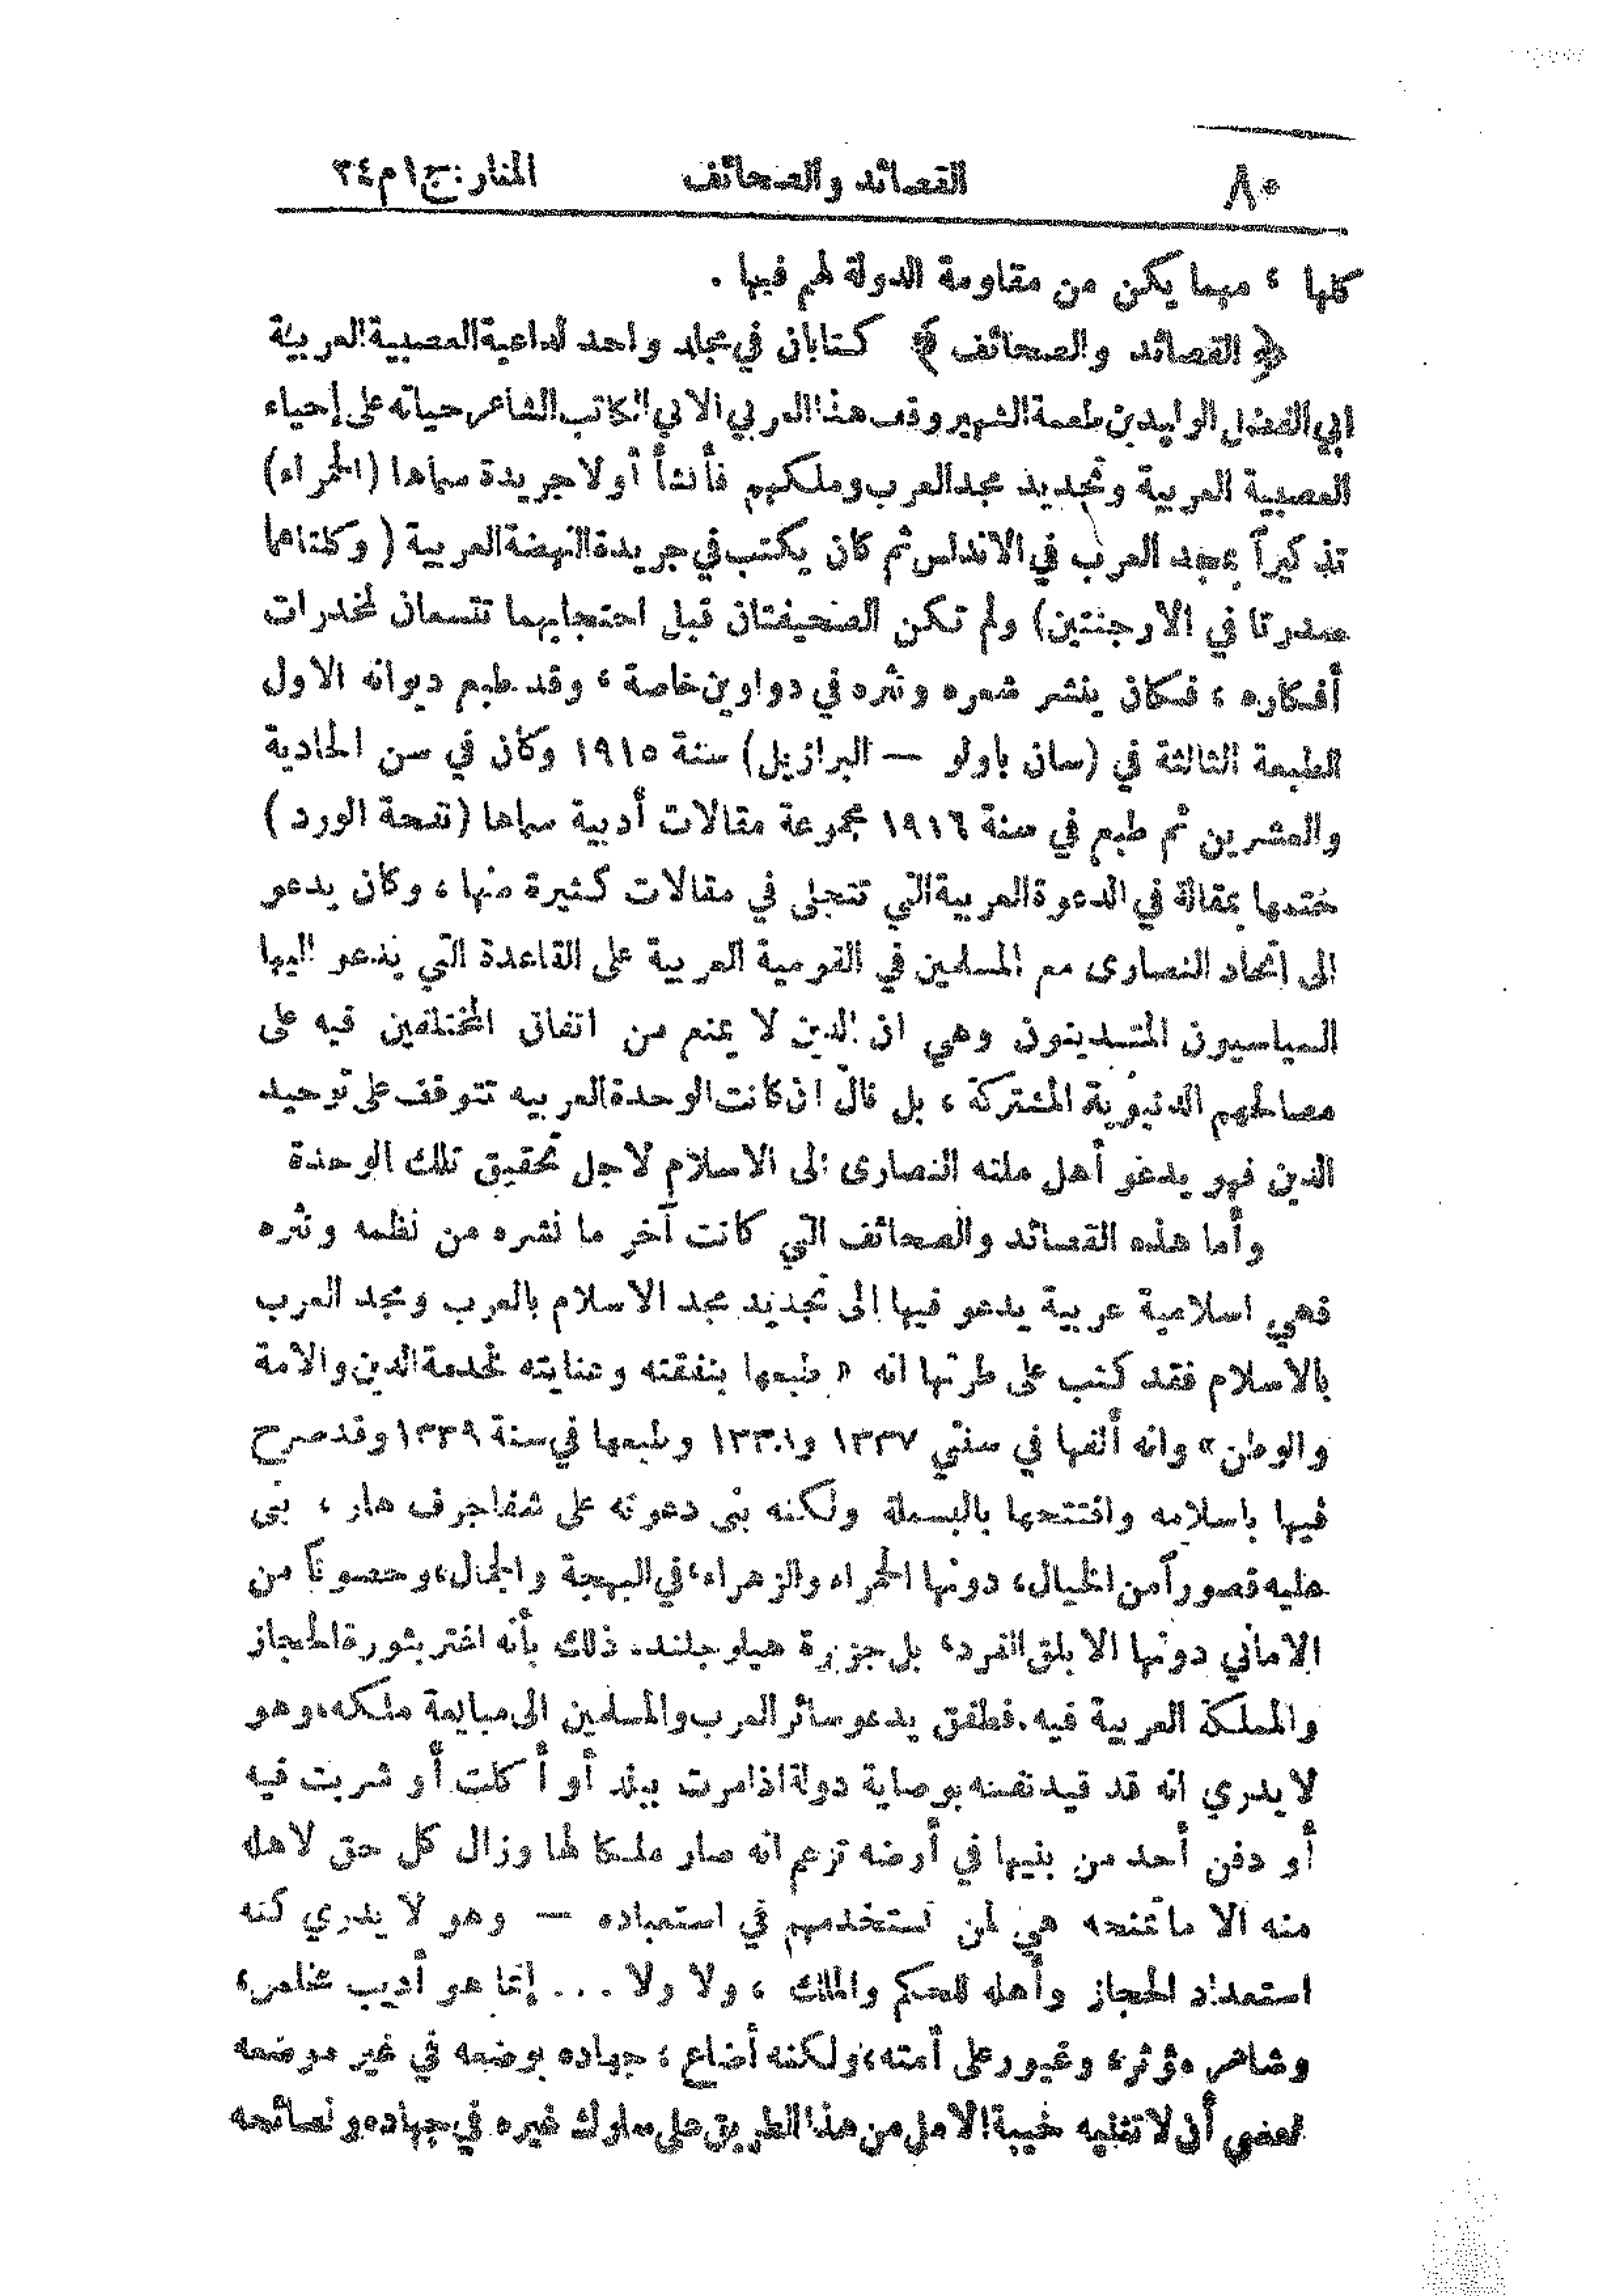 ٨٠ القصائد والصحائف المنار: ج ١ م ٢٤
كلها ، مهما يكن من مقاومة الدولة لهم فيها .
﴿ القصائد والصحائف ﴾ كتابان في مجلد واحد لداعية العصبية العربية
ابي الفضل الوليد بن طعمة الشهير وقف هذا العربي الابي الكاتب الشاعر حياته على إحياء
العصبية العربية وتجديد مجد العرب وملكهم فأنشأ أولا جريدة سماها (الحمراء)
تذكيراً بمجد العرب في الاندلس ثم كان يكتب في جريدة النهضة العربية ( وكلتاهما
صدرتا في الارجنتين) ولم تكن الصحيفتان قبل احتجابهما تتسعان لمخدرات
أفكاره ، فكان ينشر شعره ونثره في دواوين خاصة ، وقد طبع ديوانه الاول
الطبعة الثالثة في (سان باولو — البرازيل) سنة ١٩١٥ وكان في سن الحادية
والعشرين ثم طبع في سنة ١٩١٦ مجموعة مقالات أدبية سماها (نفحة الورد )
ختمها بمقالة في الدعوة العربية التي تتجلى في مقالات كثيرة منها ، وكان يدعو
الى إتحاد النصارى مع المسلمين في القومية العربية على القاعدة التي يدعو اليها
السياسيون المتدينون وهي ان الدين لا يمنع من اتفاق المختلفين فيه على
مصالحهم الدنيوية المشتركة ، بل قال ان كانت الوحدة العربيه تتوقف على توحيد
الدين فهو يدعو أهل ملته النصارى الى الاسلام لاجل تحقيق تلك الوحدة
وأما هذه القصائد والصحائف التي كانت آخر ما نشره من نظمه ونثره
فهي اسلامية عربية يدعو فيها إلى تجديد مجد الاسلام بالعرب ومجد العرب
بالاسلام فقد كتب على طرتها انه « طبعها بنفقته وعنايته لخدمة الدين والامة
والوطن» وانه ألفها في سنتي ١٣٣٧ و وطبعها في سنة ١٣٣٩ وقد صرح
فيها باسلامه وافتتحها بالبسملة ولكنه بنى دعوته على شفا جرف هار ، بنى
عليه قصوراً من الخيال، دونها الحمراء والزهراء، في البهجة والجمال، وحصوناً من
الاماني دونها الابلق الفرد، بل جزيرة هيلوجلند. ذلك بأنه اغتر بثورة الحجاز
والمملكة العربية فيه. فطفق يدعو سائر العرب والمسلمين الى مبايعة ملكه، وهو
لا يدري انه قد قيد نفسه بوصاية دولة اذا مرت ببلد أو أكلت أو شربت فيه
أو دفن أحد من بنيها في أرضه تزعم انه صار ملكا لها وزال كل حق لاهله
منه الا ما تمنحه هي لمن تستخدمهم في استعباده — وهو لا يدري كنه
استعداد الحجاز وأهله للحكم والملك ، ولا ولا ... إنما هو أديب مخلص،
وشاعر مؤثر، وغيور على أمته، ولكنه أضاع ، جهاده بوضعه في غير موضعه
فعسى أن لا تثنيه خيبة الامل من هذا الطريق على سلوك غيره في جهاده ونصائحه